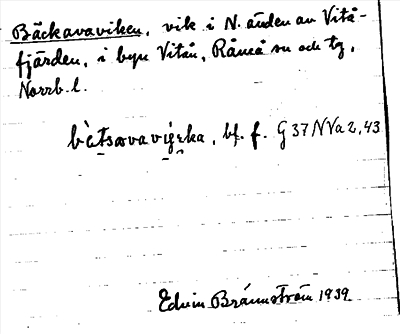 Bäckavaviken, vik i N. änden av Vitå-
fjärden, i byn Vitån, Råneå sn och tg,
Norrb. l.
bf. f. G 37 NVa 2,43
Edvin Brännström 1939